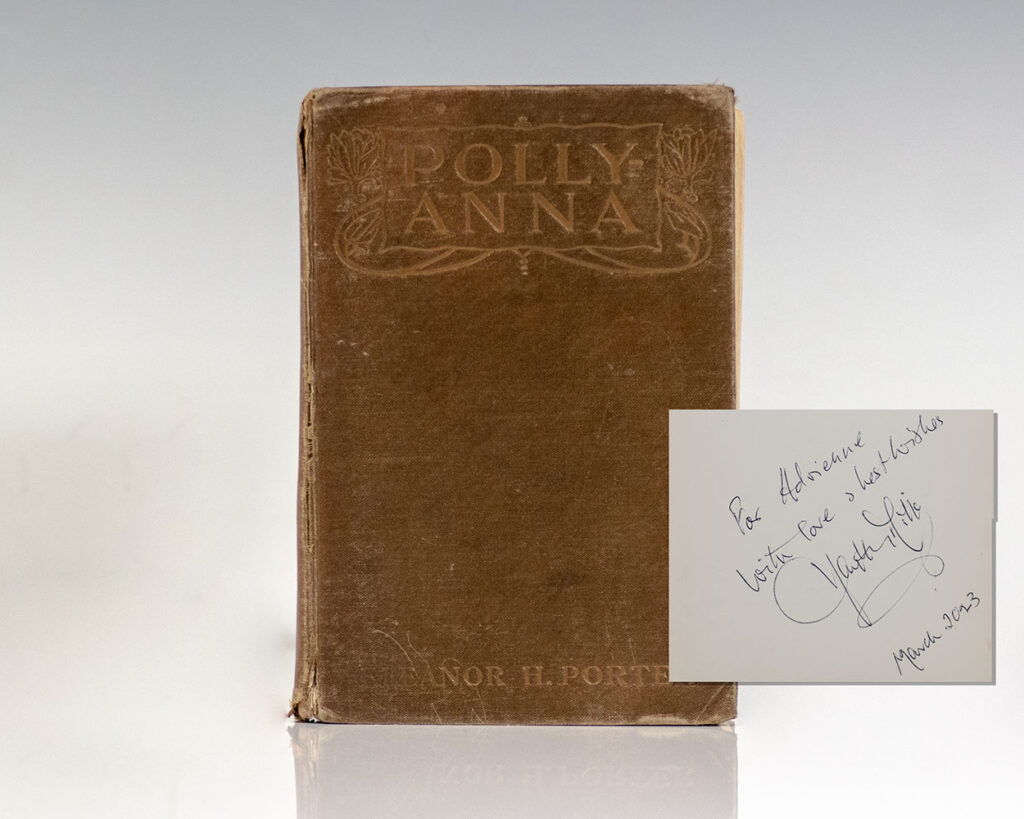 POLLY-
ANNA
EANOR H. PORTE
For Adrienne
with love & best wishes
Mills
March 2023